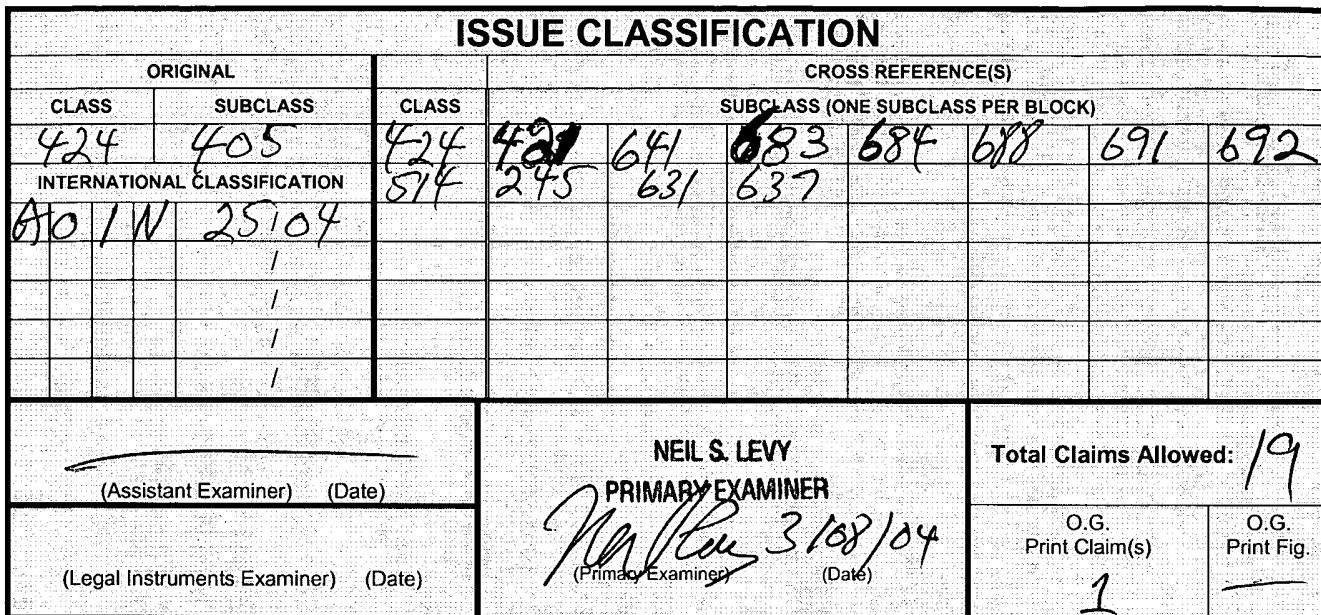 ISSUE CLASSIFICATION
ORIGINAL CROSS REFERENCE(S)
CLASS SUBCLASS CLASS SUBCLASS (ONE SUBCLASS PER BLOCK)
424 405 424 421 641 683 684 688 691 692
INTERNATIONAL CLASSIFICATION 514 245 631 637
A 0 1 N 25/04
/
/
/
/
(Assistant Examiner) (Date)
(Legal Instruments Examiner) (Date)
NEIL S. LEVY
PRIMARY EXAMINER
3/08/04
(Primary Examiner) (Date)
Total Claims Allowed: 19
O.G. Print Claim(s)
1
O.G. Print Fig.
—